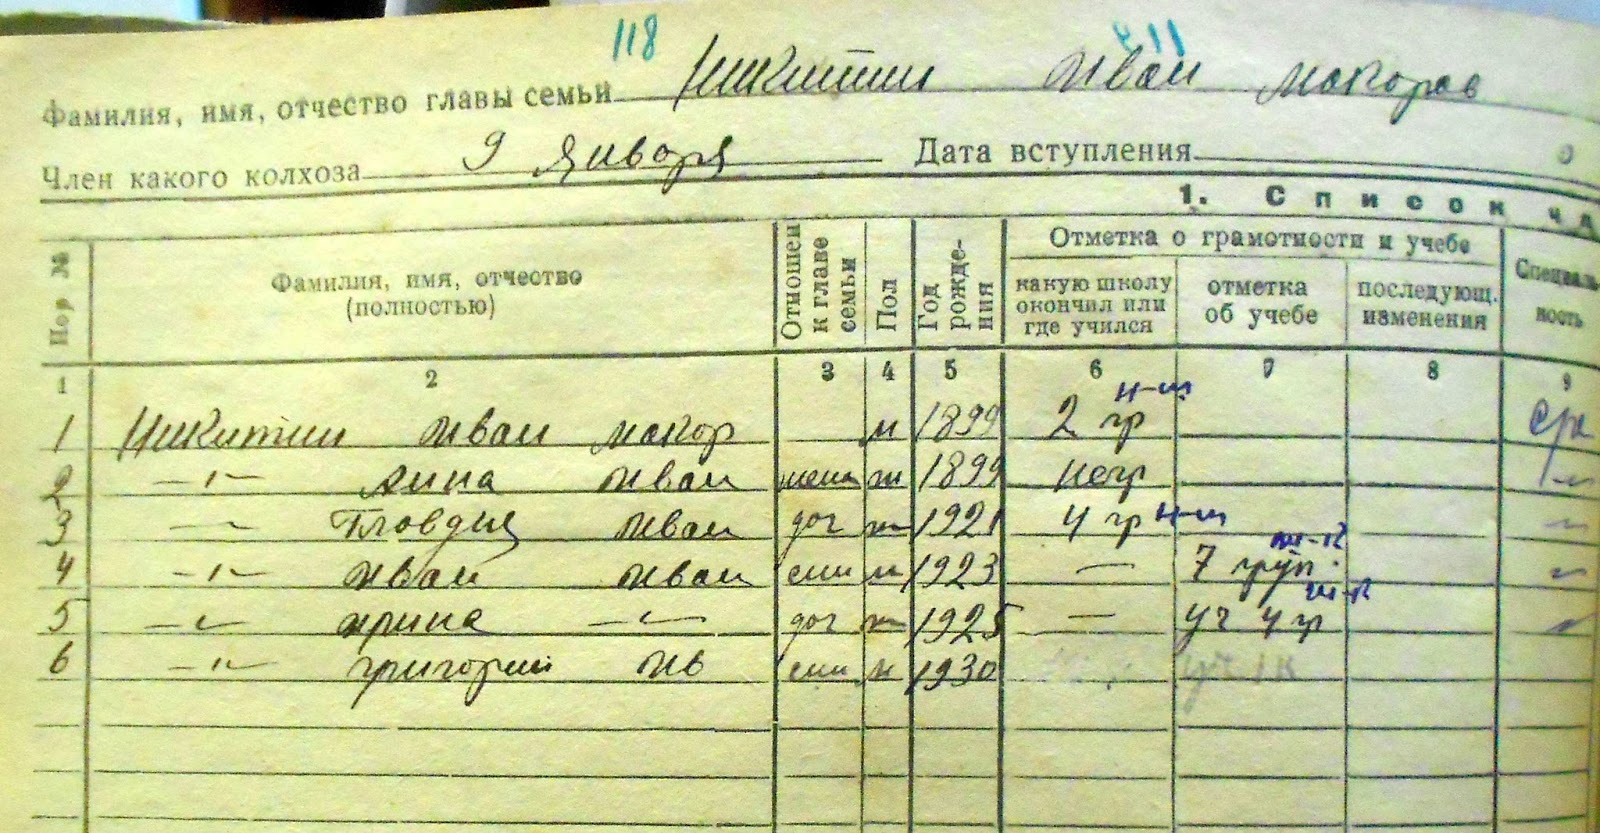 118
Фамилия, имя, отчество главы семьи Никитин Иван Макоров
Член какого колхоза 9 Января Дата вступления
1. Список чл
Пор №
Фамилия, имя, отчество (полностью)
Отношен к главе семьи
Пол
Год рожде- ния
Отметка о грамотности и учебе
какую школу окончил или где учился
отметка об учебе
последующ. изменения
Специаль- ность
1 2 3 4 5 6 7 8 9
1 Никитин Иван Макор м 1899 2 гр н-ш
2 —"— Анна Иван жена ж 1899 негр —"—
3 —"— Клавдия Иван доч ж 1921 4 гр н-ш —"—
4 —"— Иван Иван сын м 1923 — 7 груп. —"—
5 —"— Ирина —"— доч ж 1925 — уч 4 гр —"—
6 —"— Григорий Ив сын м 1930 уч 1 к